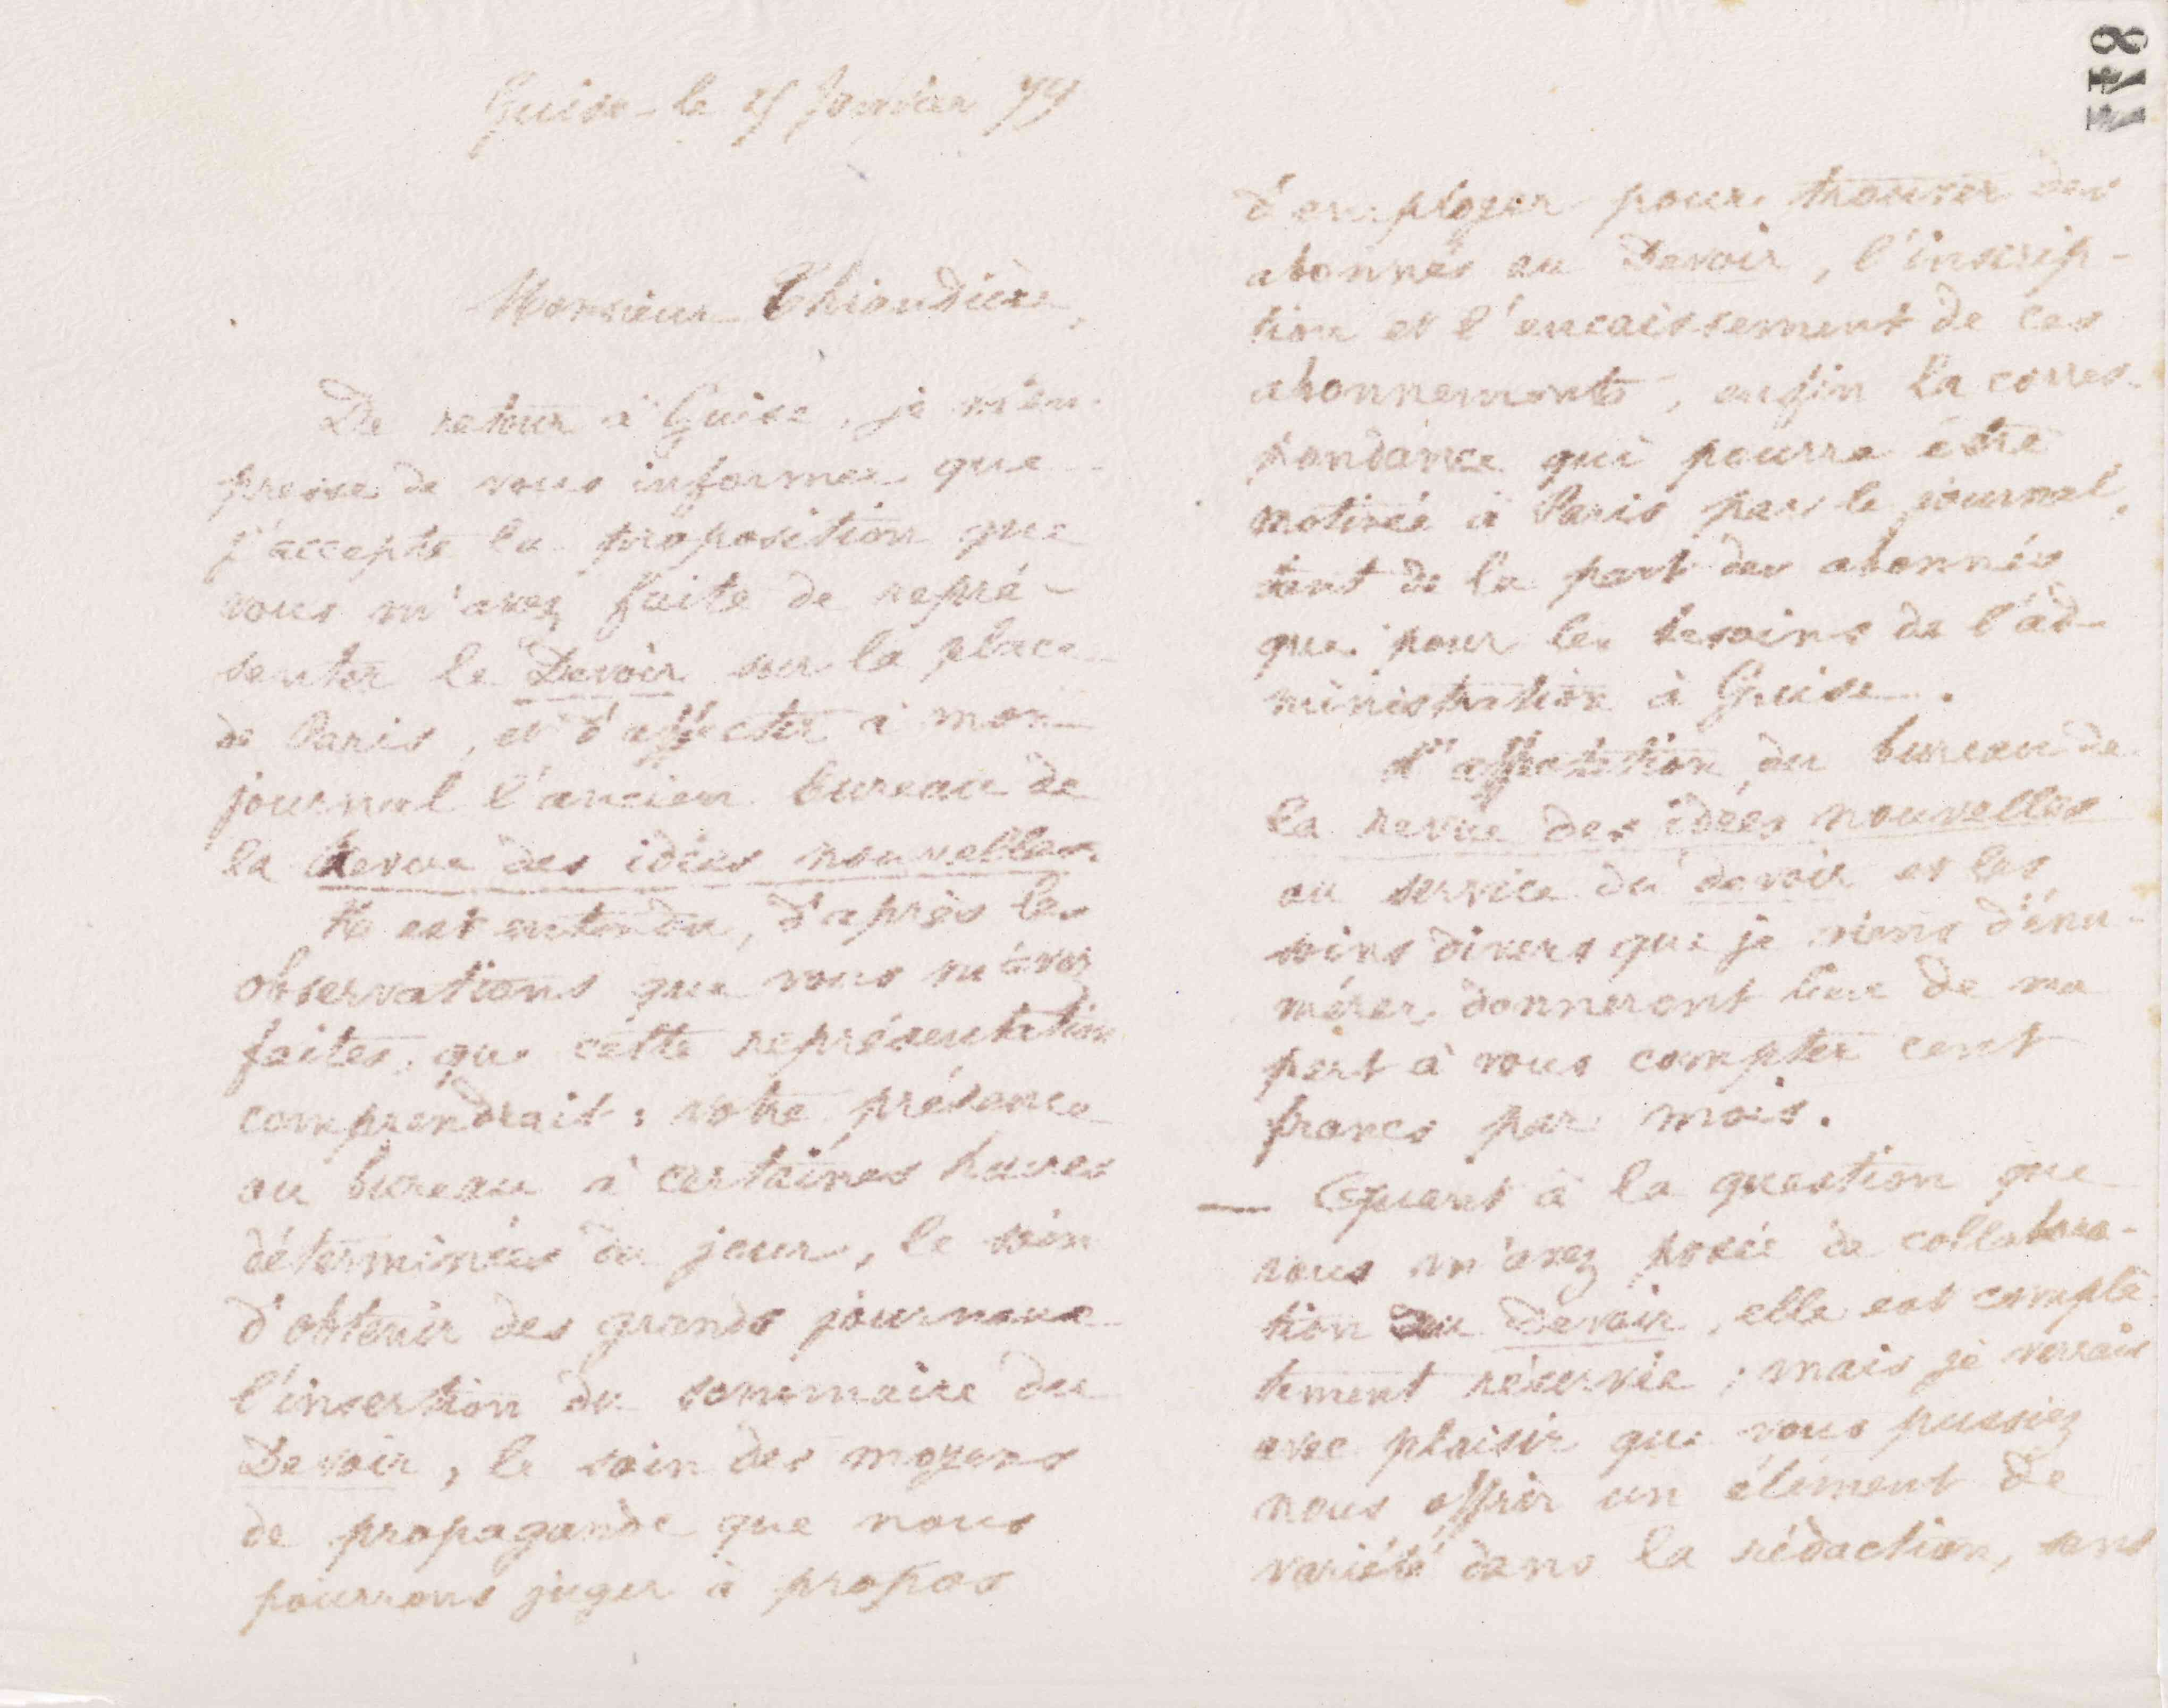 Guise le Janvier 79
Monsieur Thiaudière,
De retour à Guise, je m'em-
presse de vous informer que
j'accepte la proposition que
vous m'avez faite de repré-
senter le Devoir sur la place
de Paris, et d'affecter à mon
journal l'ancien bureau de
la Revue des idées nouvelles.
Il est entendu, d'après les
observations que vous m'avez
faites, que cette représentation
comprendrait : votre présence
au bureau à certaines heures
déterminées du jour, le soin
d'obtenir des grands journaux
l'insertion du sommaire du
Devoir, le soin des moyens
de propagande que nous
pourrons juger à propos
d'employer pour trouver des
abonnés au Devoir, l'inscrip-
tion et l'encaissement de ces
abonnements, enfin la corres-
pondance qui pourra être
motivée à Paris par le journal,
tant de la part des abonnés
que pour les besoins de l'ad-
ministration à Guise.
L'affectation du bureau de
la revue des idées nouvelles
au service du devoir et les
soins divers que je viens d'énu-
mérer donneront lieu de ma
part à vous compter cent
francs par mois.
— Quant à la question que
vous m'avez posée de collabora-
tion au Devoir, elle est complè-
tement réservée ; mais je verrais
avec plaisir que vous pussiez
nous offrir un élément de
variété dans la rédaction, sans
778